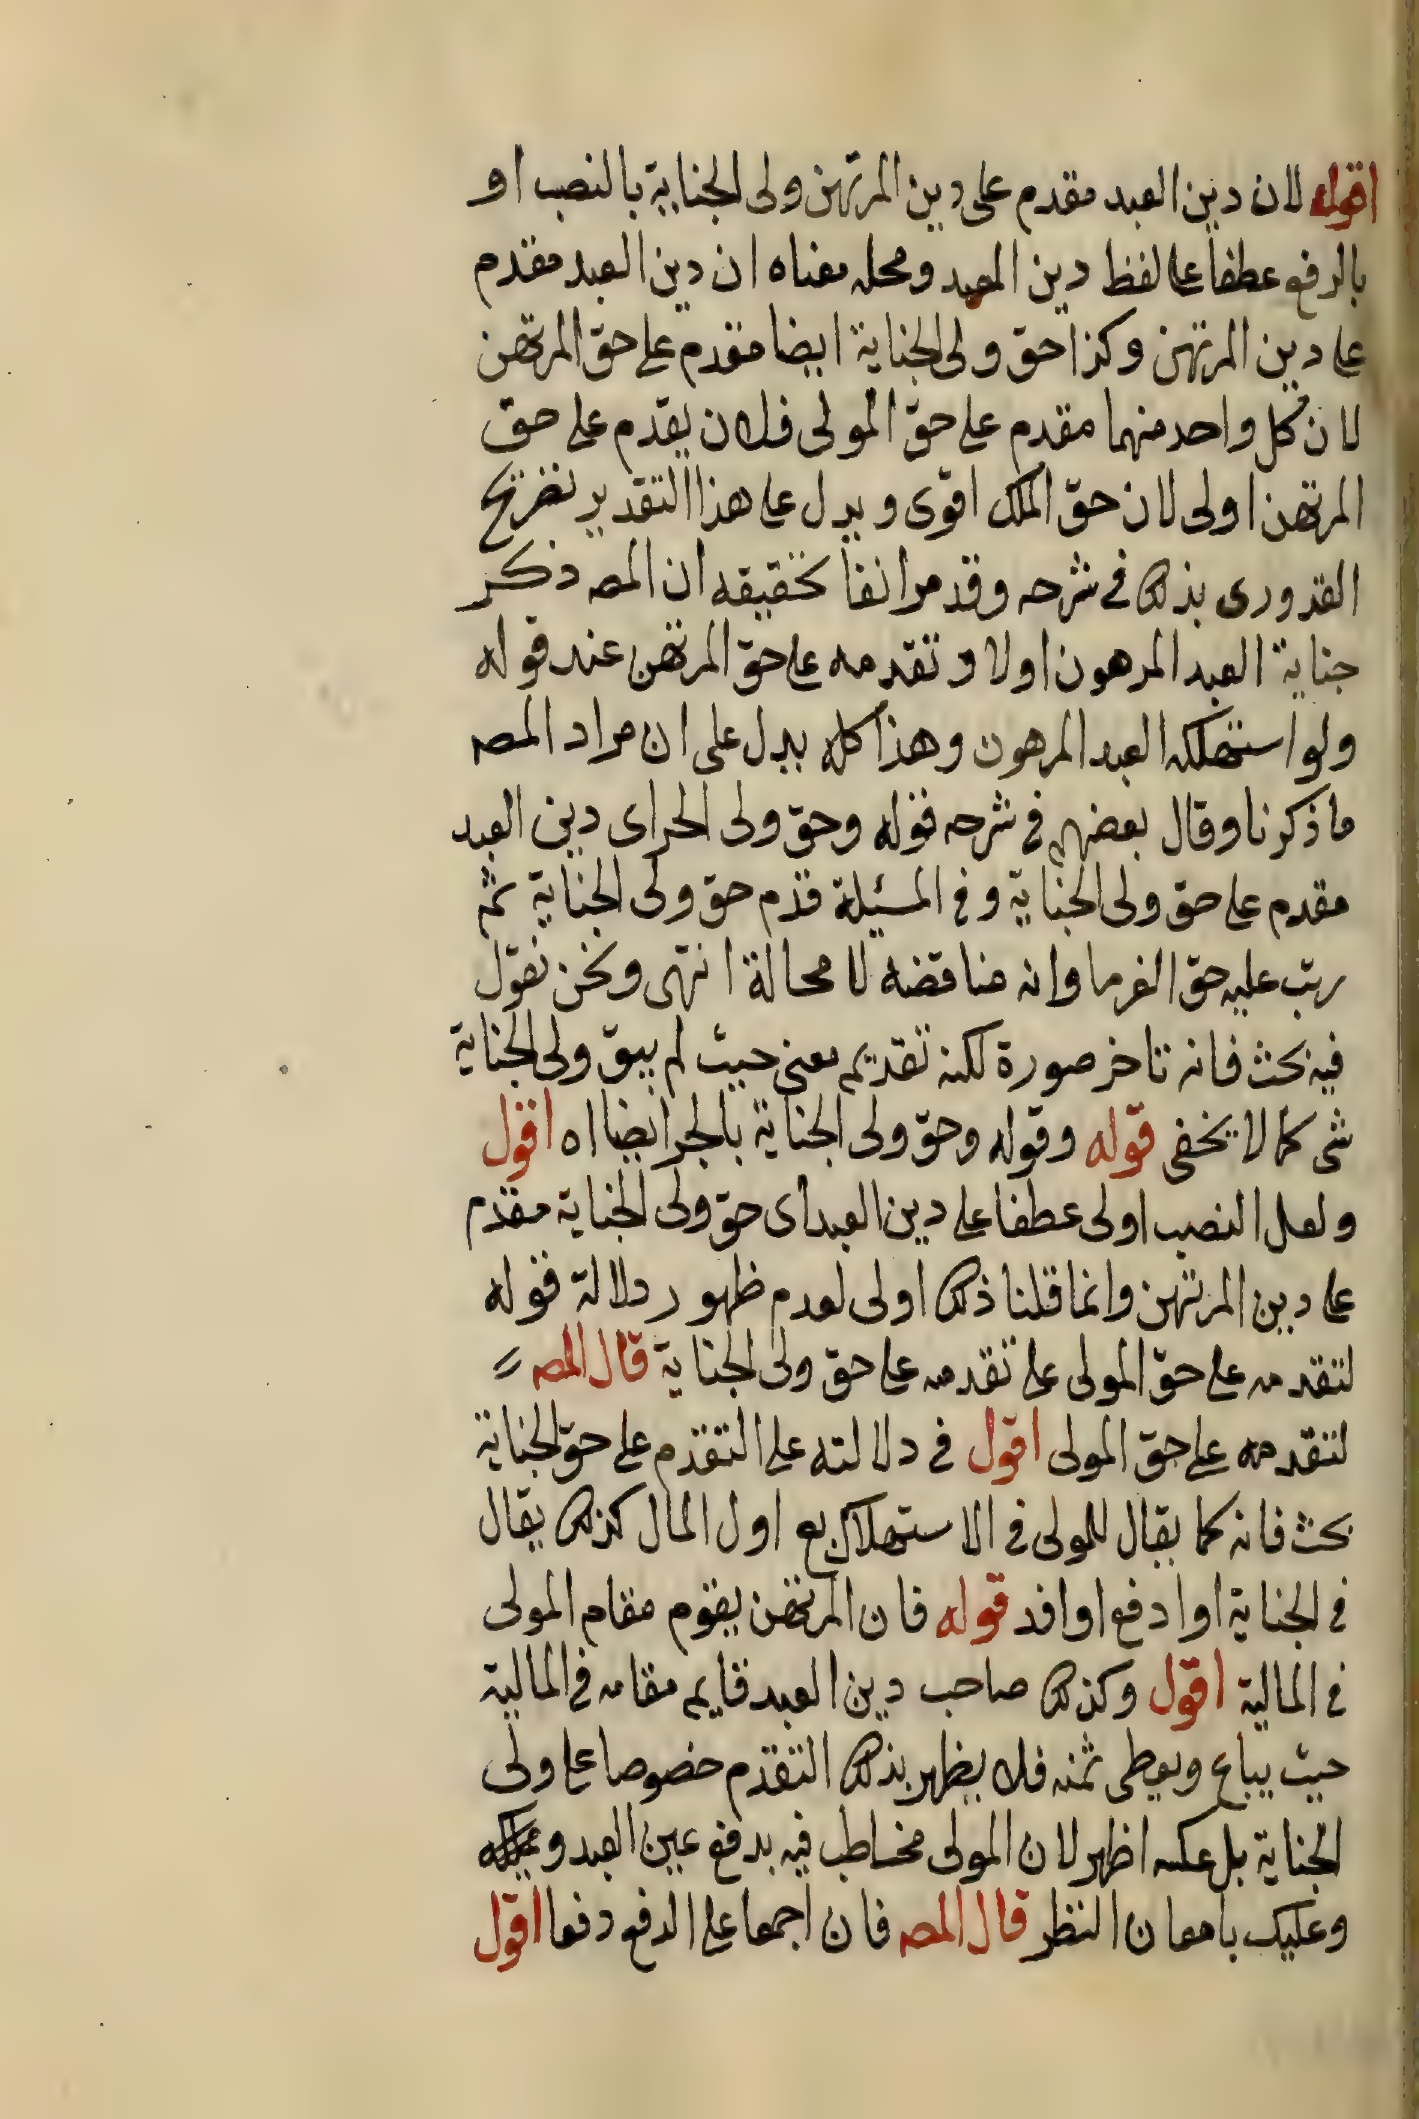 اقوله لان دين العبد مقدم على دين المرتهن ولى الجناية بالنصب او
بالرفع عطفا على لفظ دين العبد ومحله معناه ان دين العبد مقدم
على دين المرتهن وكذا حق ولى الجناية ايضا مقدم على حق المرتهن
لان كل واحد منهما مقدم على حق المولى فلان يقدم على حق
المرتهن اولى لان حق الملك اقوى ويدل على هذا التقدير تصريح
القدورى بذلك فى شرحه وقد مر انفا تحقيقه ان المصـ ذكر
جناية العبد المرهون اولا وتقدمه على حق المرتهن عند قوله
ولو استهلكه العبد المرهون وهذا كله يدل على ان مراد المصـ
ما ذكرنا وقال بعضهم فى شرحه قوله وحق ولى الحر اى دين العبد
مقدم على حق ولى الجناية وفى المسئلة قدم حق ولى الجناية ثم
رتب عليه حق الغرما وانه مناقضه لا محالة انتهى ونحن نقول
فيه بحث فانه تاخر صورة لكنه تقديم معنى حيث لم يبق ولى الجناية
شى كما لا يخفى قوله وقوله وحق ولى الجناية بالجر ايضا اه اقول
ولعل النصب اولى عطفا على دين العبد اى حق ولى الجناية مقدم
على دين المرتهن وانما قلنا ذلك اولى لعدم ظهور دلالة قوله
لتقدمه على حق المولى على تقدمه على حق ولى الجناية قال المصـ
لتقدمه على حق المولى اقول فى دلالته على التقدم على حق الجناية
بحث فانه كما يقال للمولى فى الاستهلاك بع اول المال كذلك يقال
فى الجناية اوا دفع او افد قوله فان المرتهن يقوم مقام المولى
فى المالية اقول وكذلك صاحب دين العبد قايم مقامه فى المالية
حيث يباع ويعطى ثمنه فلا يظهر بذلك التقدم خصوصا على ولى
الجناية بل عكسه اظهر لان المولى مخاطب فيه بدفع عين العبد
وعليك بامعان النظر قال المصـ فان اجمعا على الدفع دفعا اقول